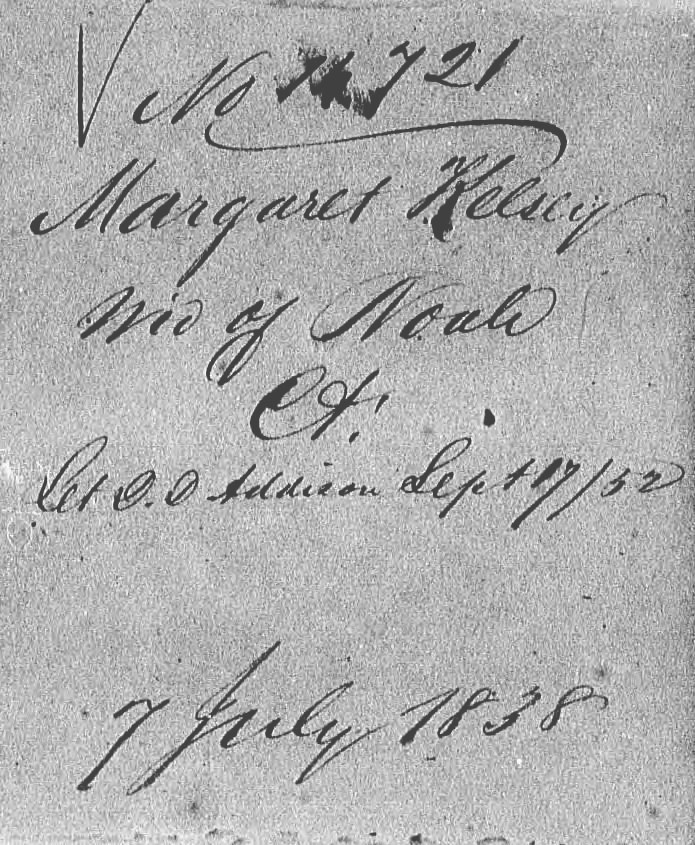 No 721
Margaret Kelsey
Wid of Noah
Ct.
Let D. D Addison Sept 17/52
7 July 1838